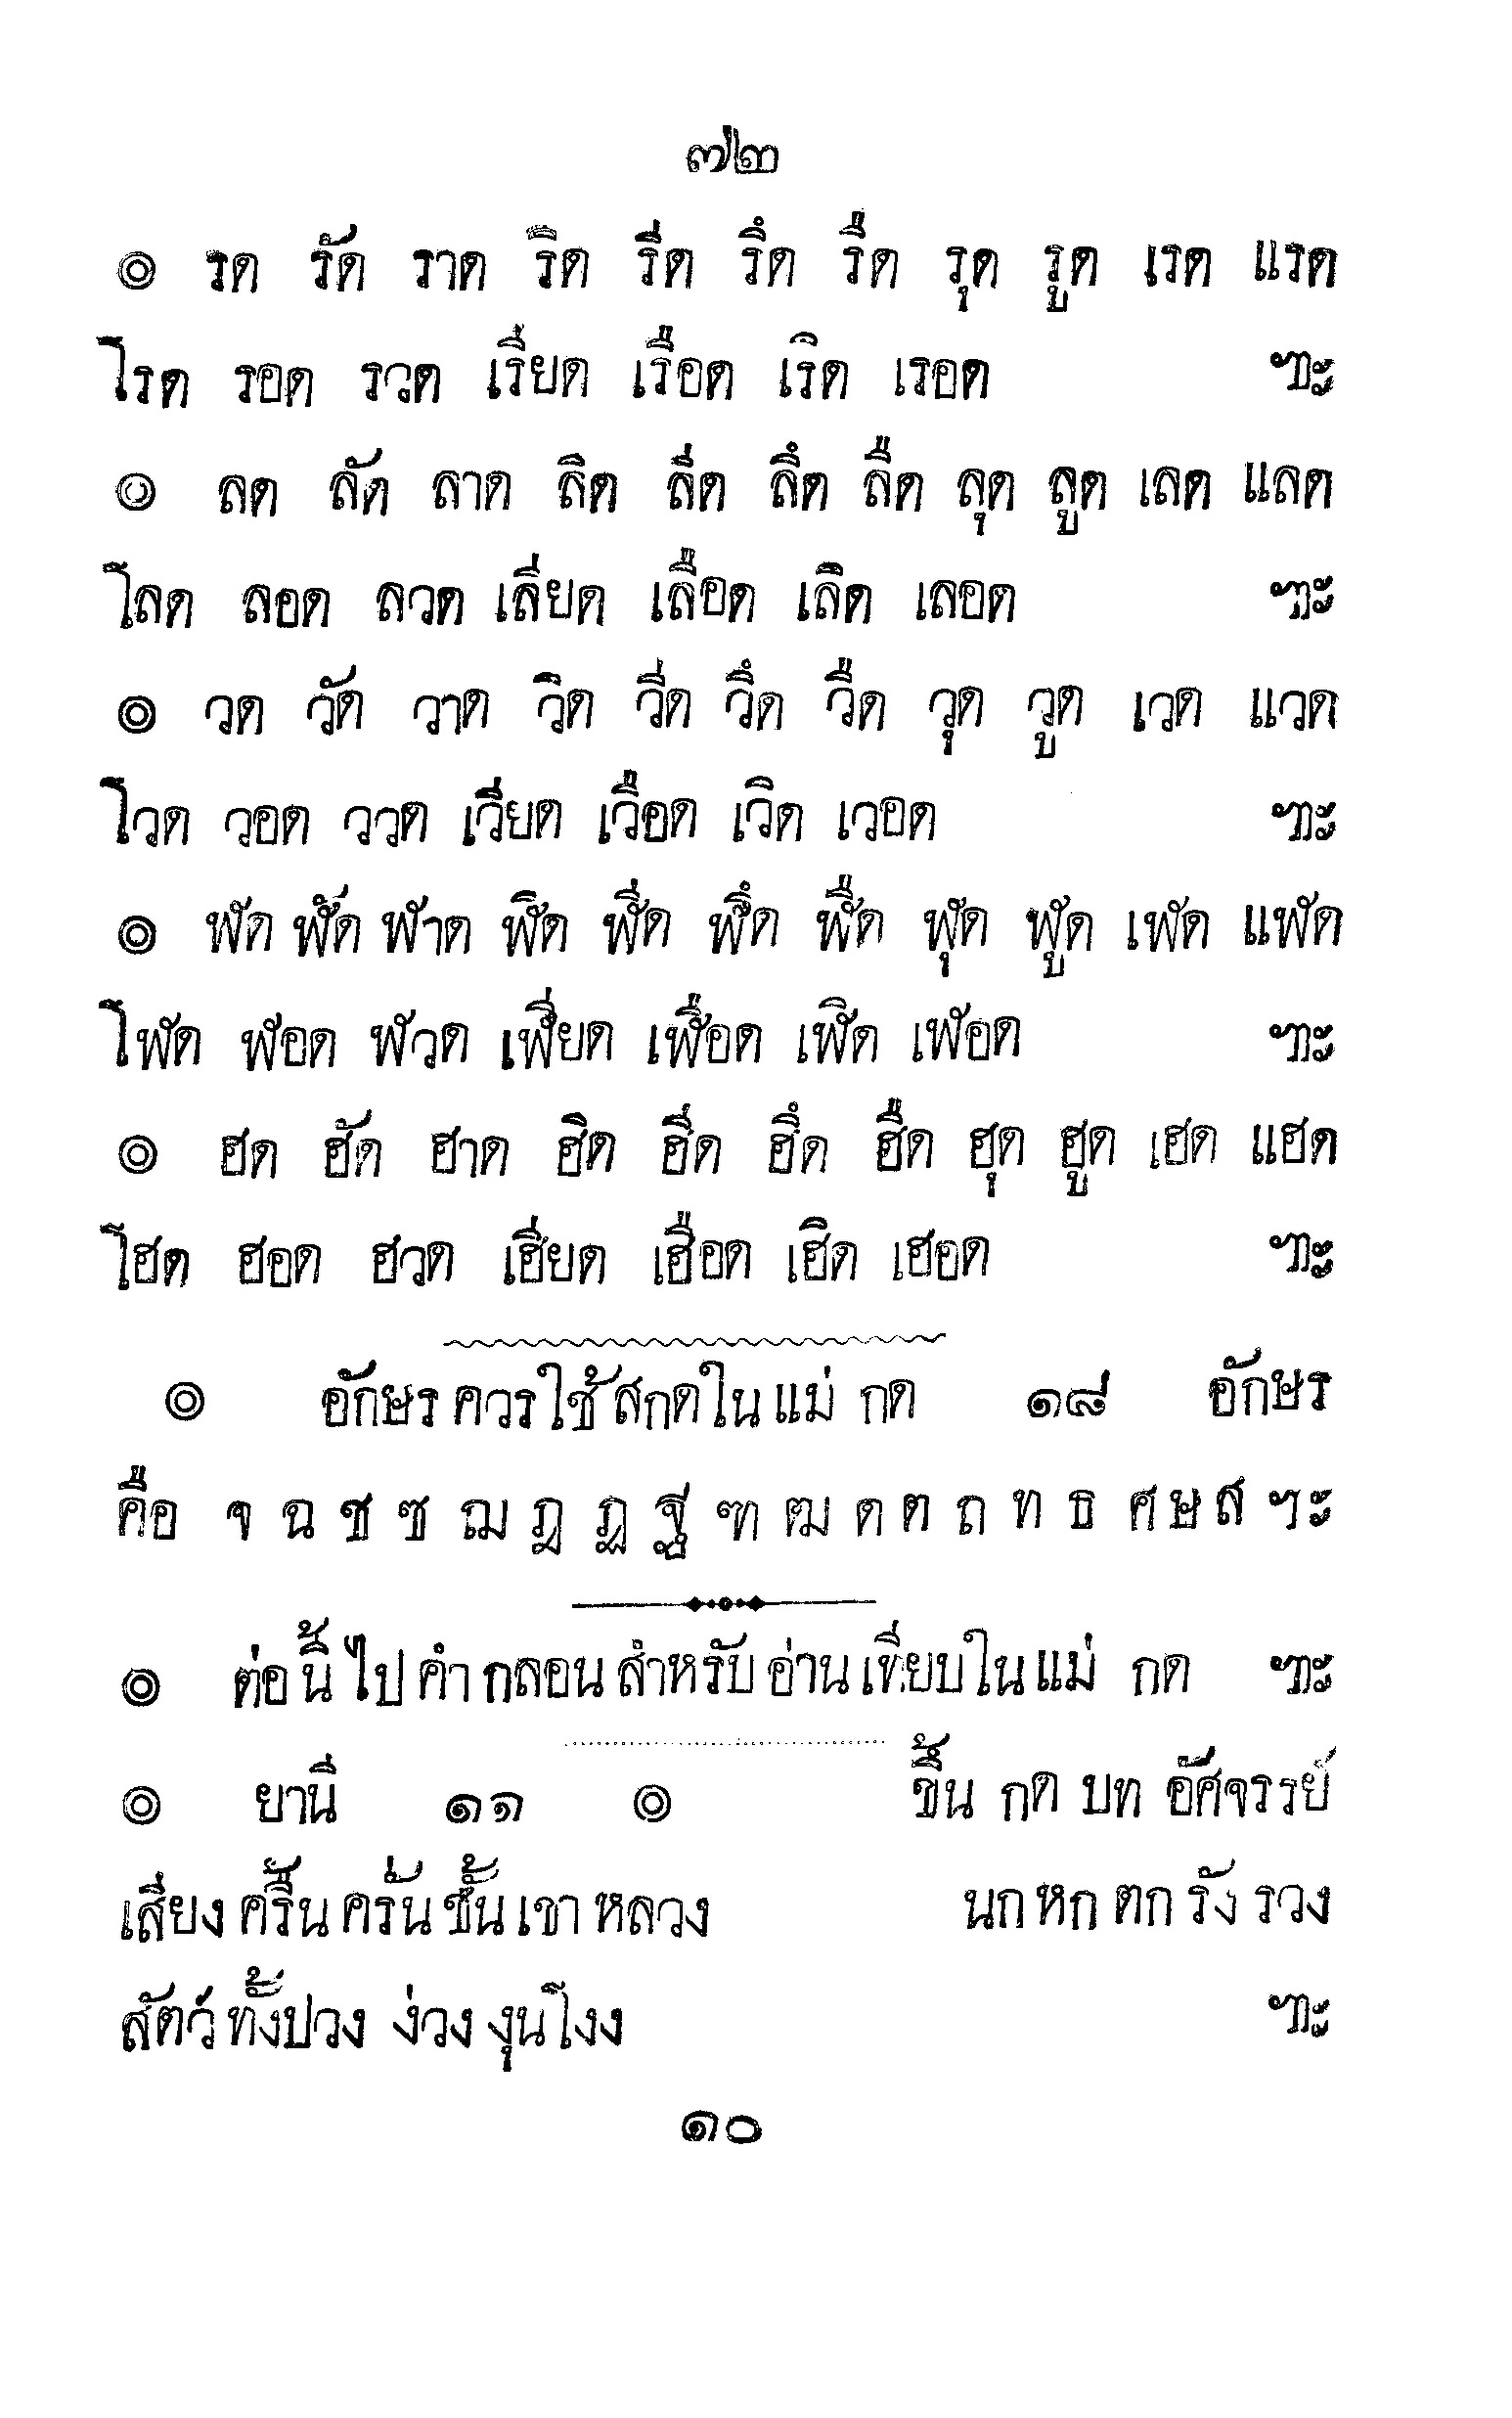 ๗๒
๏ รด รัด ราด ริด รีด รึด รืด รุด รูด เรด แรด
โรด รอด รวด เรียด เรือด เริด เรอด ฯะ
๏ ลด ลัด ลาด ลิด ลีด ลึด ลืด ลุด ลูด เลด แลด
โลด ลอด ลวด เลียด เลือด เลิด เลอด ฯะ
๏ วด วัด วาด วิด วีด วึด วืด วุด วูด เวด แวด
โวด วอด ววด เวียด เวือด เวิด เวอด ฯะ
๏ ฬด ฬัด ฬาด ฬิด ฬีด ฬึด ฬืด ฬุด ฬูด เฬด แฬด
โฬด ฬอด ฬวด เฬียด เฬือด เฬิด เฬอด ฯะ
๏ ฮด ฮัด ฮาด ฮิด ฮีด ฮึด ฮืด ฮุด ฮูด เฮด แฮด
โฮด ฮอด ฮวด เฮียด เฮือด เฮิด เฮอด ฯะ
๏ อักษรควรใช้สกดในแม่ กด ๑๘ อักษร
คือ จ ฉ ช ซ ฌ ฎ ฏ ฐ ฑ ฒ ด ต ถ ท ธ ศ ษ ส ฯะ
๏ ต่อนี้ไปคำกลอนสำหรับอ่านเทียบในแม่ กด ฯะ
๏ ยานี ๑๑ ๏ ขึ้น กด บท อัศจรรย์
เสียงครื้นครั่นชั้นเขาหลวง นกหกตกรังรวง
สัตว์ทั้งปวง ง่วงงุนโงง ฯะ
๑๐